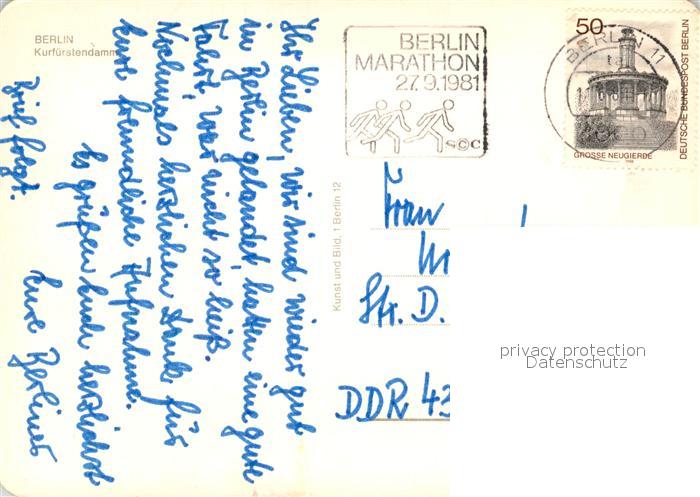 BERLIN
Kurfürstendamm
Ihr Lieben, wir sind wieder gut
in Berlin gelandet, hatten eine gute
Fahrt, war nicht so heiß.
Nochmals herzlichen Dank für
Eure freundliche Aufnahme.
Es grüßen Euch herzlichst
Eure Berliner
Brief folgt.
Kunst und Bild, 1 Berlin 12
BERLIN
MARATHON
27.9.1981
SCC
BERLIN 11
50
DEUTSCHE BUNDESPOST BERLIN
GROSSE NEUGIERDE
Frau
Str. D.
DDR 43
privacy protection
Datenschutz